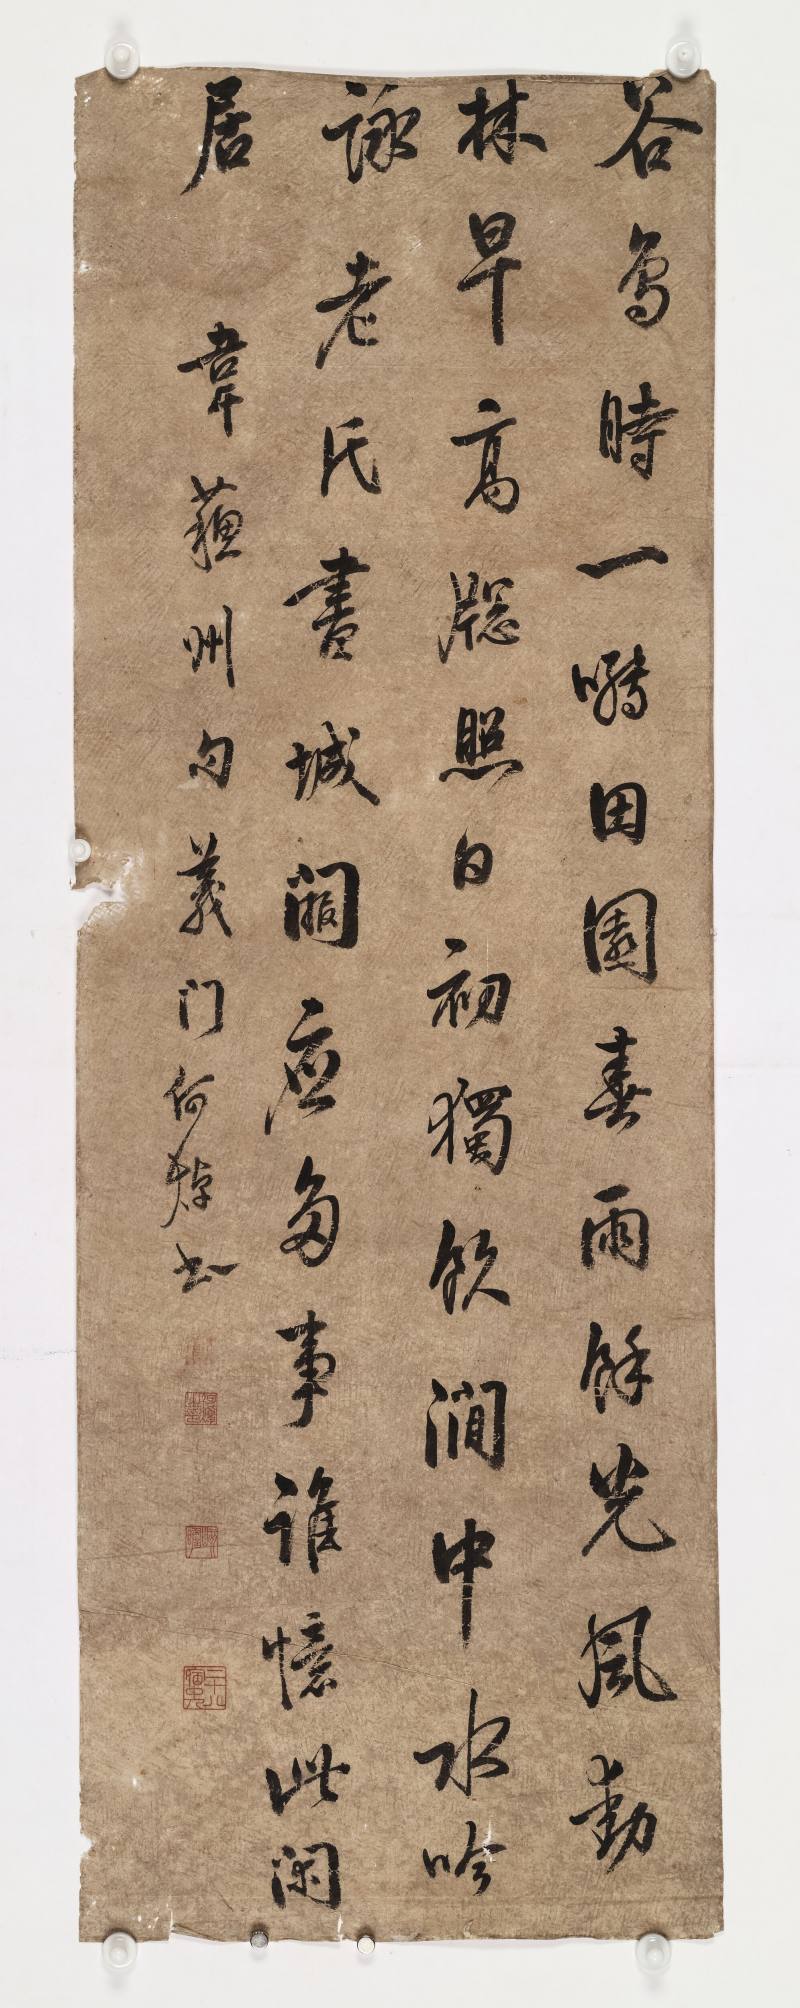 谷鸟時一囀田園春雨餘光風動
林早高牕照日初獨飲澗中水吟
詠老氏書城闕应多事谁憶此閑
居
韋蘇州句義门何焯书